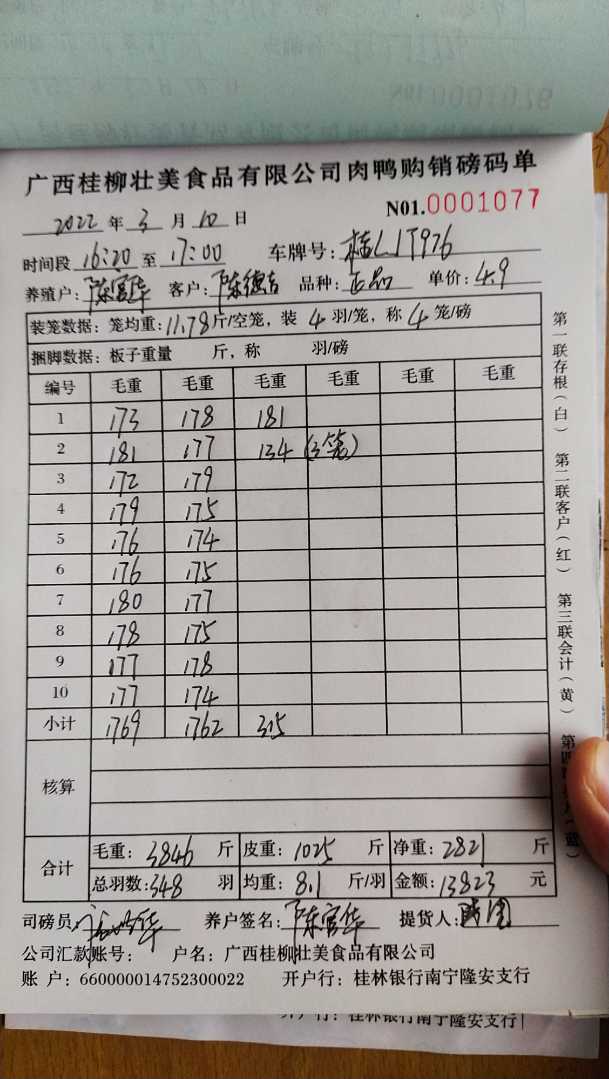 广西桂柳壮美食品有限公司肉鸭购销磅码单
2022 年 3 月 10 日 N01.0001077
时间段 16:20 至 17:00 车牌号: 桂LJT976
养殖户: 陈富华 客户: 陈德吉 品种: 正品 单价: 4.9
装笼数据: 笼均重: 11.78 斤/空笼, 装 4 羽/笼, 称 4 笼/磅
捆脚数据: 板子重量 斤, 称 羽/磅
编号 毛重 毛重 毛重 毛重 毛重 毛重
1 173 178 181
2 181 177 134 (3笼)
3 172 179
4 179 175
5 176 174
6 176 175
7 180 177
8 178 175
9 177 178
10 177 174
小计 1769 1762 315
核算
合计 毛重: 3846 斤 皮重: 1025 斤 净重: 2821 斤
总羽数: 348 羽 均重: 8.1 斤/羽 金额: 13823 元
司磅员: 养户签名: 陈富华 提货人:
公司汇款账号: 户名: 广西桂柳壮美食品有限公司
账 户: 660000014752300022 开户行: 桂林银行南宁隆安支行
第一联存根(白) 第二联客户(红) 第三联会计(黄)
开户行: 桂林银行南宁隆安支行